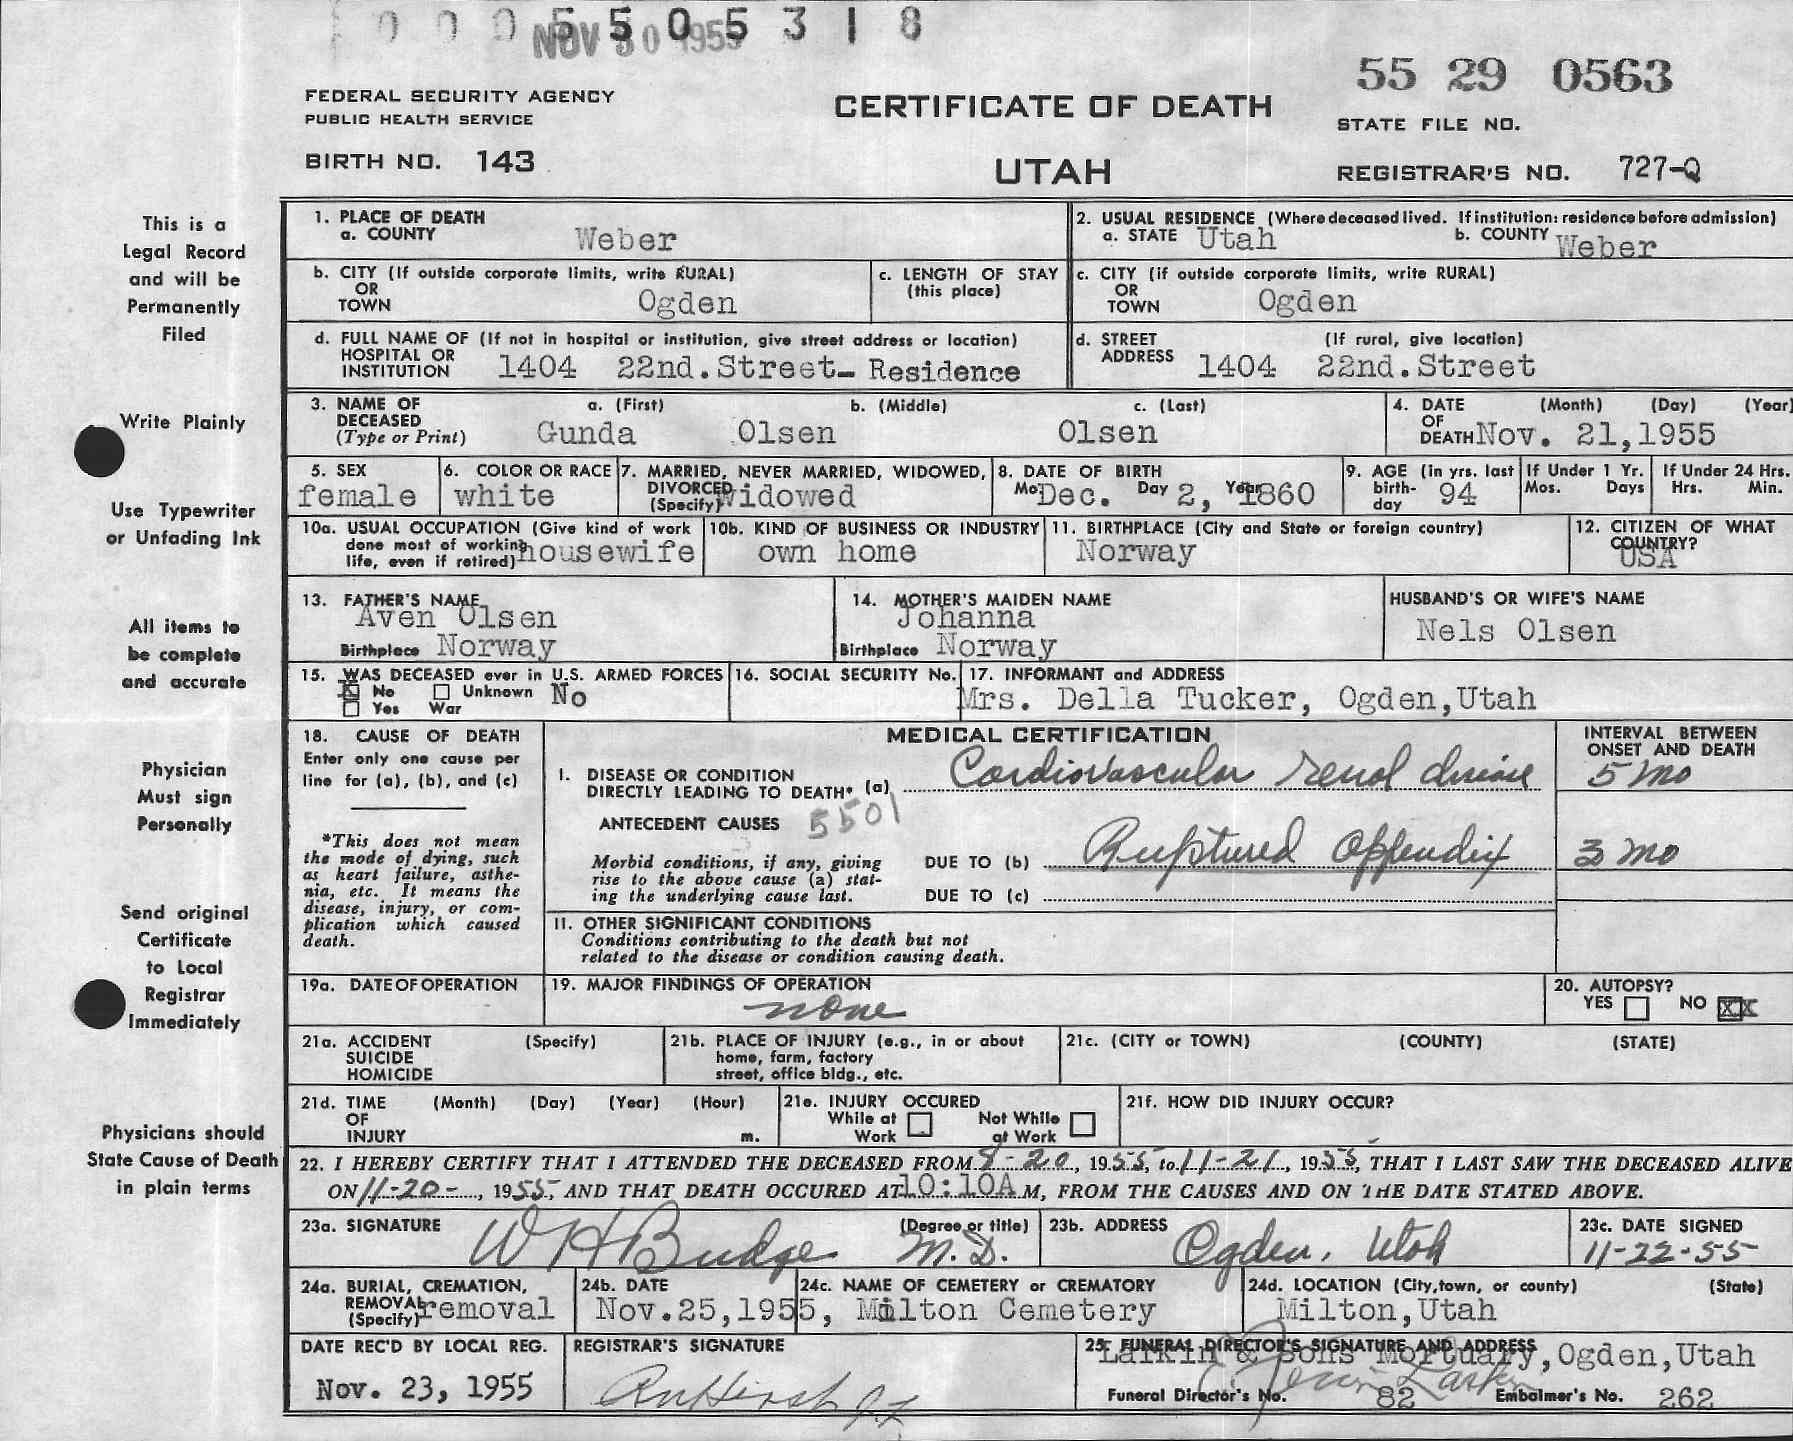 0 0 0 5 5 0 5 3 1 8
NOV 30 1955
55 29 0563
FEDERAL SECURITY AGENCY
PUBLIC HEALTH SERVICE
CERTIFICATE OF DEATH
STATE FILE NO.
BIRTH NO. 143
UTAH
REGISTRAR'S NO. 727-Q
This is a
Legal Record
and will be
Permanently
Filed
Write Plainly
Use Typewriter
or Unfading Ink
All items to
be complete
and accurate
Physician
Must sign
Personally
Send original
Certificate
to Local
Registrar
Immediately
Physicians should
State Cause of Death
in plain terms
1. PLACE OF DEATH
a. COUNTY Weber
2. USUAL RESIDENCE (Where deceased lived. If institution: residence before admission)
a. STATE Utah b. COUNTY Weber
b. CITY (If outside corporate limits, write RURAL)
OR
TOWN Ogden
c. LENGTH OF STAY
(this place)
c. CITY (if outside corporate limits, write RURAL)
OR
TOWN Ogden
d. FULL NAME OF (If not in hospital or institution, give street address or location)
HOSPITAL OR
INSTITUTION 1404 22nd. Street- Residence
d. STREET (If rural, give location)
ADDRESS 1404 22nd. Street
3. NAME OF a. (First) b. (Middle) c. (Last)
DECEASED
(Type or Print) Gunda Olsen Olsen
4. DATE (Month) (Day) (Year)
OF
DEATH Nov. 21, 1955
5. SEX
female
6. COLOR OR RACE
white
7. MARRIED, NEVER MARRIED, WIDOWED,
DIVORCED
(Specify) widowed
8. DATE OF BIRTH
Mo Dec. Day 2, Year 1860
9. AGE (in yrs. last
birth-
day 94
If Under 1 Yr.
Mos. Days
If Under 24 Hrs.
Hrs. Min.
10a. USUAL OCCUPATION (Give kind of work
done most of working
life, even if retired) housewife
10b. KIND OF BUSINESS OR INDUSTRY
own home
11. BIRTHPLACE (City and State or foreign country)
Norway
12. CITIZEN OF WHAT
COUNTRY?
USA
13. FATHER'S NAME
Aven Olsen
Birthplace Norway
14. MOTHER'S MAIDEN NAME
Johanna
Birthplace Norway
HUSBAND'S OR WIFE'S NAME
Nels Olsen
15. WAS DECEASED ever in U.S. ARMED FORCES
X No Unknown No
Yes War
16. SOCIAL SECURITY No.
17. INFORMANT and ADDRESS
Mrs. Della Tucker, Ogden, Utah
18. CAUSE OF DEATH
Enter only one cause per
line for (a), (b), and (c)
*This does not mean
the mode of dying, such
as heart failure, asthe-
nia, etc. It means the
disease, injury, or com-
plication which caused
death.
MEDICAL CERTIFICATION
INTERVAL BETWEEN
ONSET AND DEATH
I. DISEASE OR CONDITION
DIRECTLY LEADING TO DEATH* (a) Cardiovascular renal disease 5 mo
ANTECEDENT CAUSES 5501
Morbid conditions, if any, giving
rise to the above cause (a) stat-
ing the underlying cause last.
DUE TO (b) Ruptured Appendix 3 mo
DUE TO (c)
II. OTHER SIGNIFICANT CONDITIONS
Conditions contributing to the death but not
related to the disease or condition causing death.
19a. DATE OF OPERATION
19. MAJOR FINDINGS OF OPERATION
none
20. AUTOPSY?
YES NO XX
21a. ACCIDENT (Specify)
SUICIDE
HOMICIDE
21b. PLACE OF INJURY (e.g., in or about
home, farm, factory
street, office bldg., etc.
21c. (CITY or TOWN) (COUNTY) (STATE)
21d. TIME (Month) (Day) (Year) (Hour)
OF
INJURY m.
21e. INJURY OCCURED
While at Not While
Work at Work
21f. HOW DID INJURY OCCUR?
22. I HEREBY CERTIFY THAT I ATTENDED THE DECEASED FROM 8-20, 1955, to 11-21, 1955, THAT I LAST SAW THE DECEASED ALIVE
ON 11-20-, 1955, AND THAT DEATH OCCURED AT 10:10A M, FROM THE CAUSES AND ON THE DATE STATED ABOVE.
23a. SIGNATURE (Degree or title)
W H Budge M.D.
23b. ADDRESS
Ogden, Utah
23c. DATE SIGNED
11-22-55
24a. BURIAL, CREMATION,
REMOVAL
(Specify) removal
24b. DATE
Nov. 25, 1955,
24c. NAME OF CEMETERY or CREMATORY
Milton Cemetery
24d. LOCATION (City, town, or county) (State)
Milton, Utah
DATE REC'D BY LOCAL REG.
Nov. 23, 1955
REGISTRAR'S SIGNATURE
25. FUNERAL DIRECTOR'S SIGNATURE AND ADDRESS
Larkin & Sons Mortuary, Ogden, Utah
Funeral Director's No. 82 Embalmer's No. 262